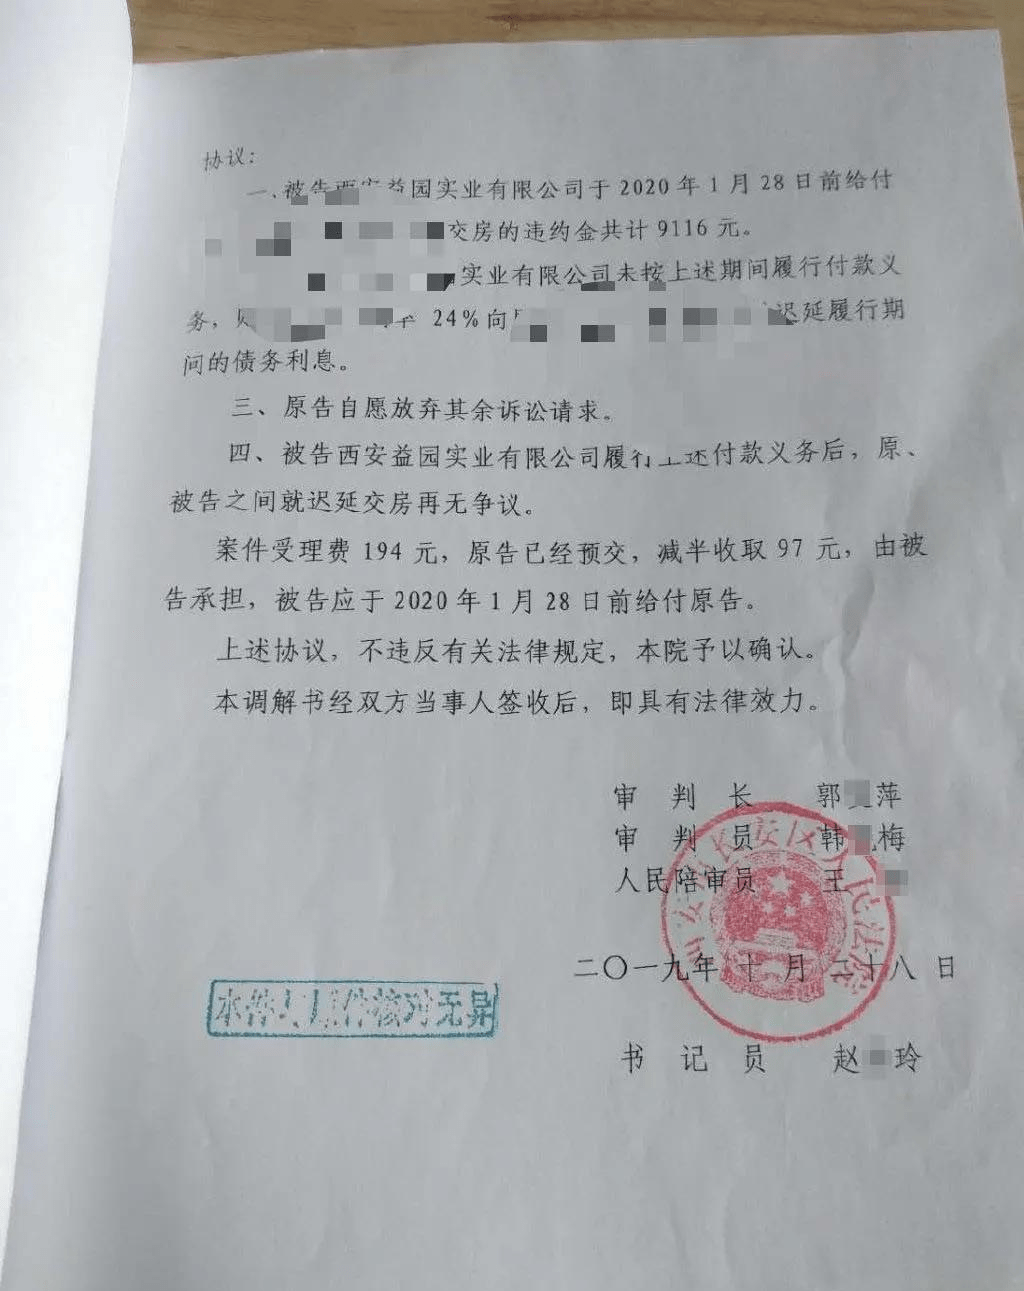 协议:
一、被告西安益园实业有限公司于2020年1月28日前给付
交房的违约金共计9116元。
实业有限公司未按上述期间履行付款义
务, 24%向 迟延履行期
间的债务利息。
三、原告自愿放弃其余诉讼请求。
四、被告西安益园实业有限公司履行上述付款义务后,原、
被告之间就迟延交房再无争议。
案件受理费194元,原告已经预交,减半收取97元,由被
告承担,被告应于2020年1月28日前给付原告。
上述协议,不违反有关法律规定,本院予以确认。
本调解书经双方当事人签收后,即具有法律效力。
审判长 郭 萍
审判员 韩 梅
人民陪审员 王
西安市长安区人民法院
二〇一九年十月二十八日
本件与原件核对无异
书记员 赵 玲